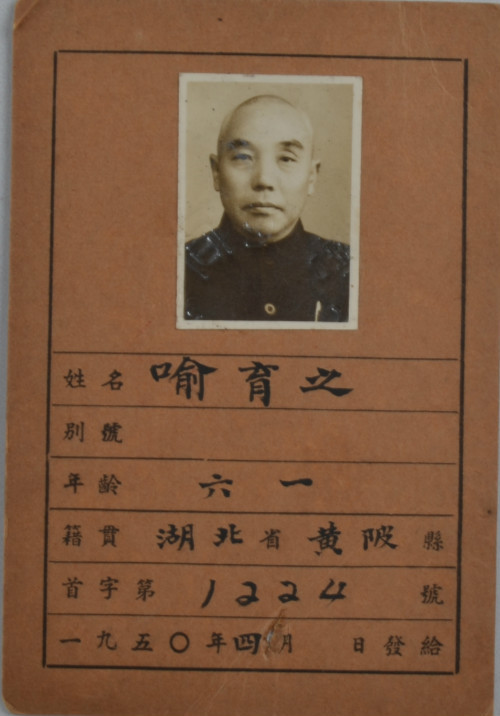 姓名 喻育之
別號
年齡 六一
籍貫 湖北省黃陂縣
首字第 1224 號
一九五〇年四月 日發給